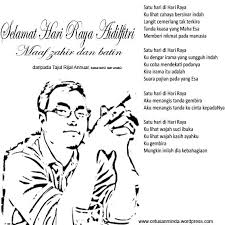 Selamat Hari Raya Aidilfitri
Maaf zahir dan batin
daripada Tajul Rijal Annuar
Satu hari di Hari Raya
Ku lihat cahaya bersinar indah
Langit cemerlang tak terkira
Tanda kuasa yang Maha Esa
Memberi nikmat pada manusia
Satu hari di Hari Raya
Ku dengar irama yang sungguh indah
Ku cuba mendekati padanya
Kira irama itu adalah
Suara pujian pada yang Esa
Satu hari di Hari Raya
Aku menangis tanda gembira
Aku menangis tanda ku cinta kepadaNya
Satu hari di Hari Raya
Ku lihat wajah suci ibuku
Ku lihat wajah kasih ayahku
Ku gembira
Mungkin inilah dia kebahagiaan
www.cetusanminda.wordpress.com